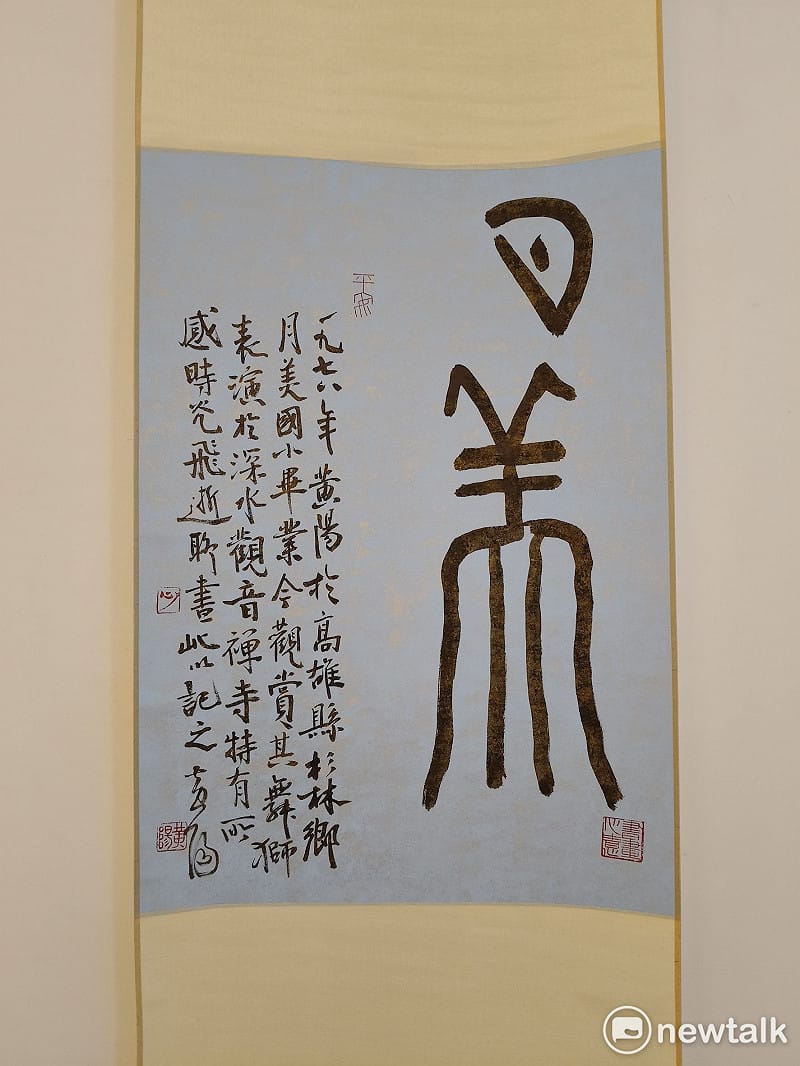 月美
平安
一九七八年黃陽於高雄縣杉林鄉
月美國小畢業今觀賞其舞獅
表演於深水觀音禪寺特有所
感時光飛逝聊書此以記之黃陽
黃陽
newtalk